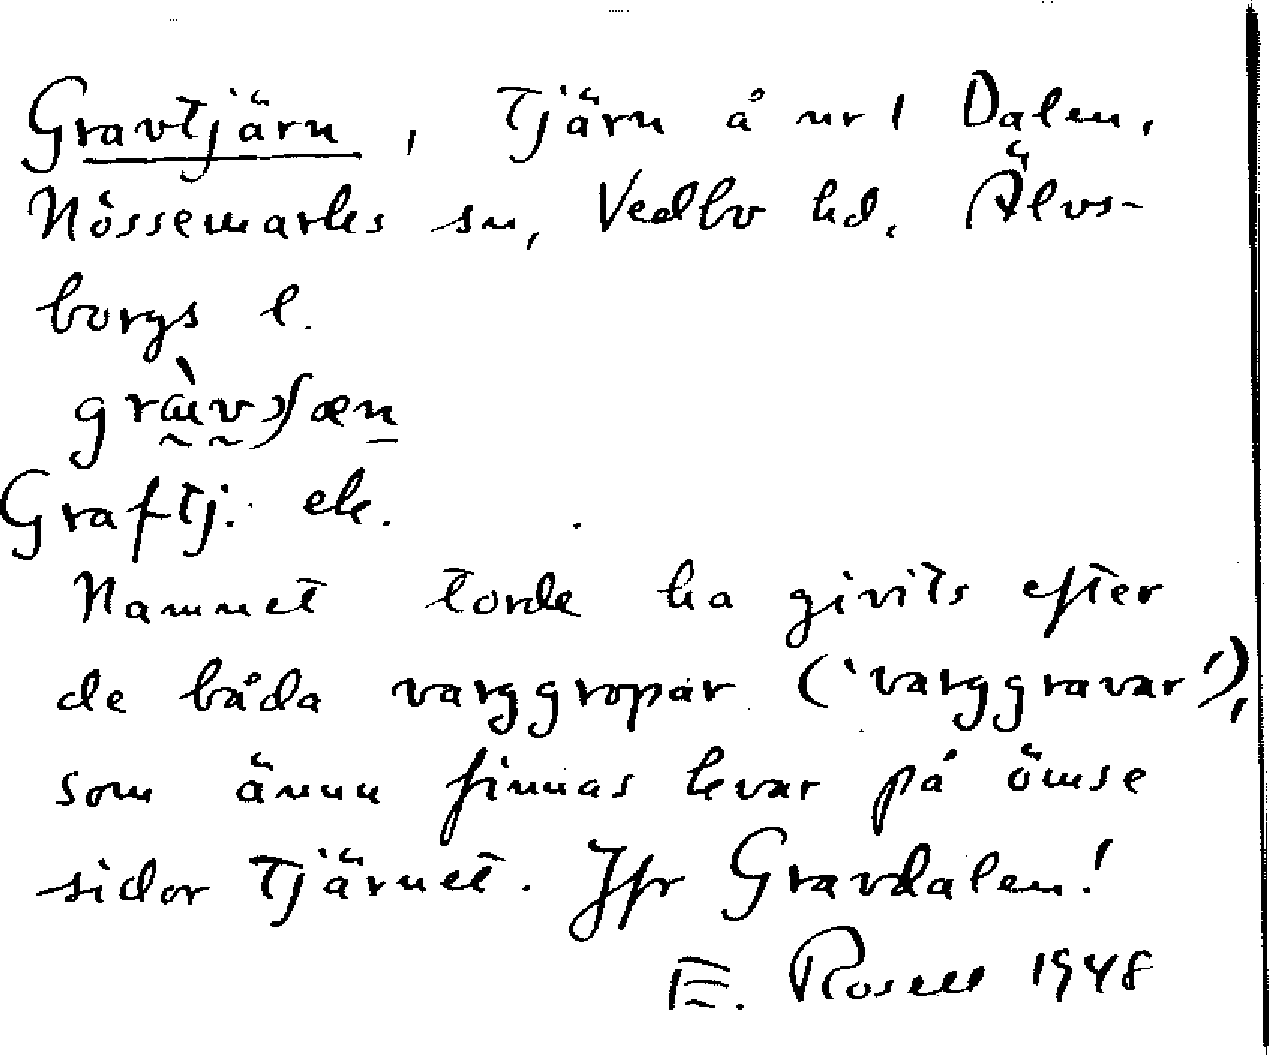 Gravtjärn, Tjärn å nr 1 Dalen,
Nössemarks sn, Vedbo hd. Älvs-
borgs l.
Graftj. ek.
Namnet torde ha givits efter
de båda varggropar ('varggravar'),
som ännu finnas kvar på ömse
sidor Tjärnet. Jfr Gravdalen!
E. Rosell 1948